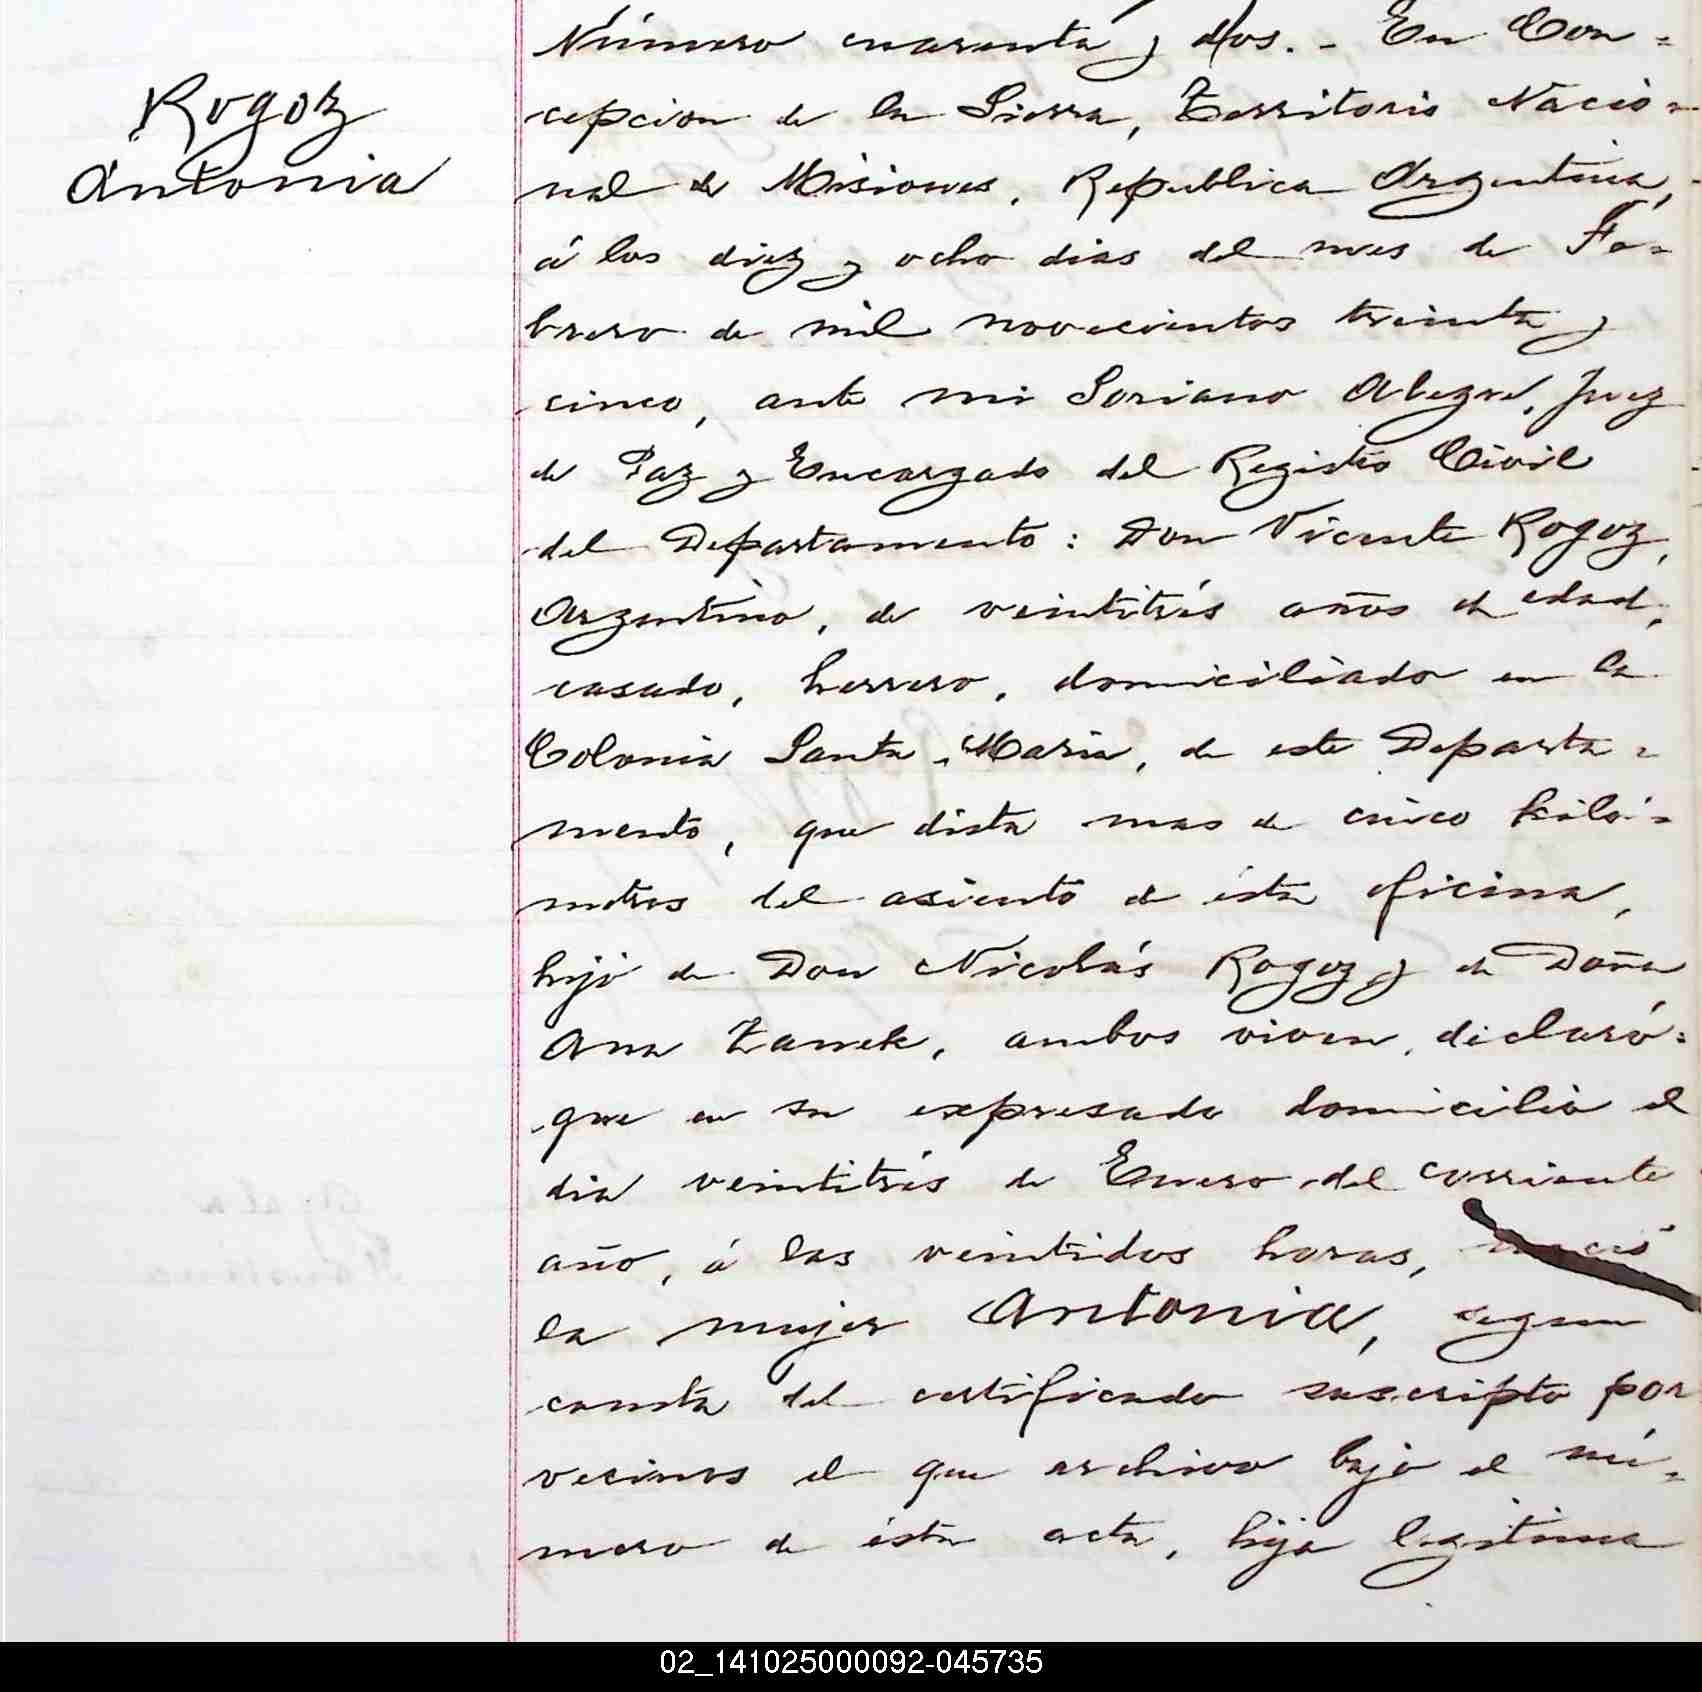 Rogoz
Antonia
Número cuarenta y dos. - En Con=
cepcion de la Sierra, Territorio Nacio=
nal de Misiones, Republica Argentina,
á los diez y ocho dias del mes de Fe=
brero de mil novecientos treinta y
cinco, ante mi Soriano Alegre, Juez
de Paz y Encargado del Registro Civil
del Departamento: Don Vicente Rogoz,
Argentino, de veintitrés años de edad,
casado, herrero, domiciliado en la
Colonia Santa Maria, de este Departa=
mento, que dista mas de cinco kiló=
metros del asiento de ésta oficina,
hijo de Don Nicolás Rogoz y de Doña
Ana Zanek, ambos viven, declaró:
que en su expresado domicilio el
dia veintitrés de Enero del corriente
año, á las veintidos horas, nació
la mujer Antonia, segun
consta del certificado suscripto por
vecinos el que archivo bajo el nú=
mero de ésta acta, hija legitima
02_141025000092-045735